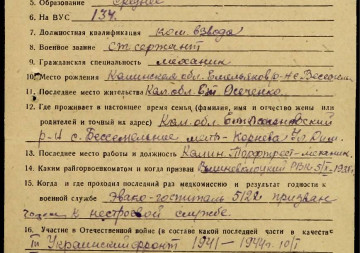 5. Образование среднее
6. На ВУС 134.
7. Должностная квалификация ком. взвода
8. Военное звание ст. сержант
9. Гражданская специальность механик
10. Место рождения Калининская обл.
11. Последнее место жительства Кал. обл. ст. Осеченко
12. Где проживает в настоящее время семья (фамилия, имя и отчество жены или
родителей и точный их адрес) Кал. обл.
р-н с. мать-Корнева
13. Последнее место работы и должность Калин. механик.
14. Каким райгорвоенкоматом и когда призван РВК
15. Когда и где проходил последний раз медкомиссию и результат годности к
военной службе Эвако-госпиталь 5122 признан
к нестроевой службе
16. Участие в Отечественной войне (в составе какой последней части в качестве
Украинский фронт 1941-1944г.